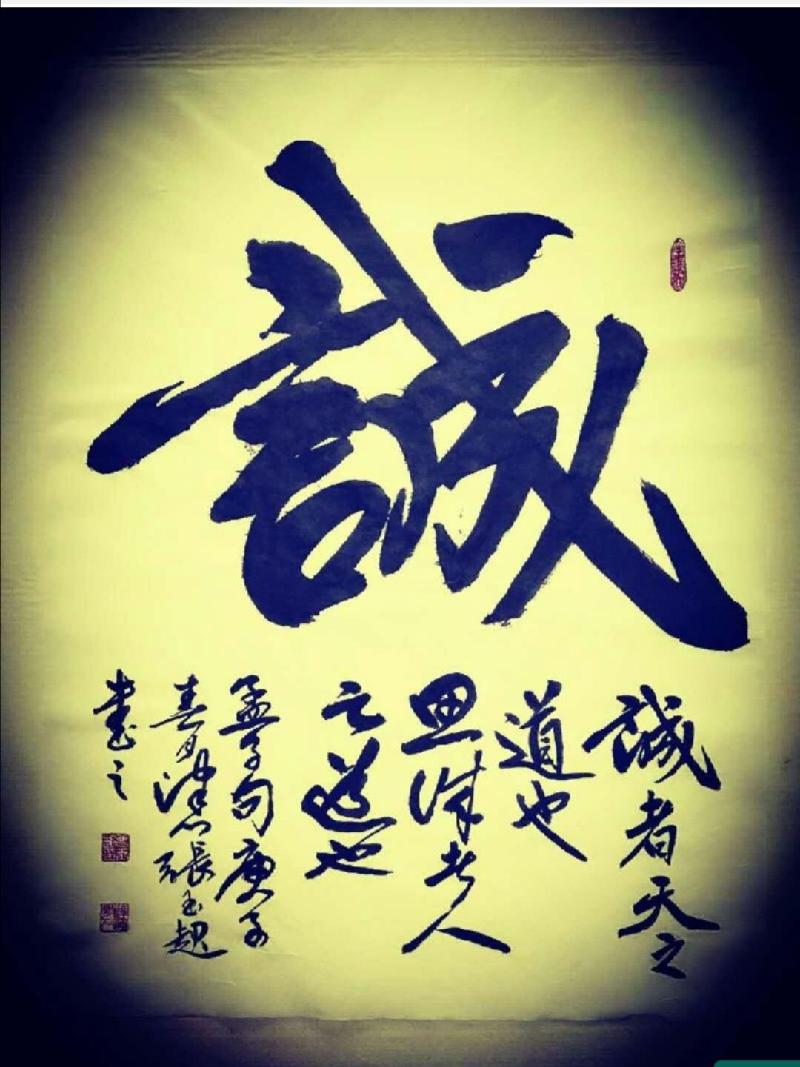 誠
誠者天之
道也
思誠者人
之道也
孟子句庚子
春月張玉超
書之